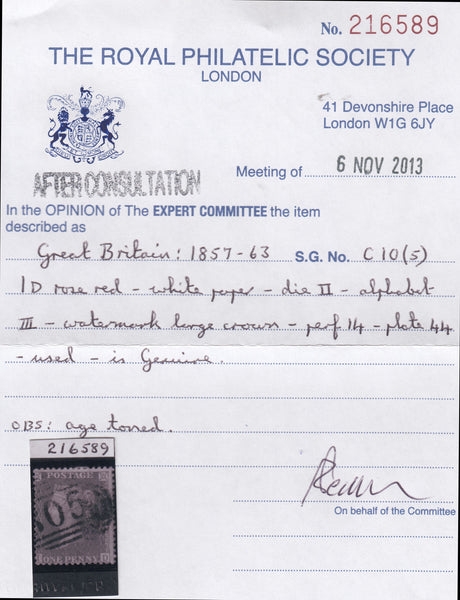 No. 216589
THE ROYAL PHILATELIC SOCIETY
LONDON
41 Devonshire Place
London W1G 6JY
Meeting of 6 NOV 2013
AFTER CONSULTATION
In the OPINION of The EXPERT COMMITTEE the item
described as
Great Britain: 1857-63 S.G. No. C10(5)
1D rose red - white paper - die II - alphabet
III - watermark large crown - perf 14 - plate 44
- used - is Genuine.
OBS: age toned.
216589
On behalf of the Committee
POSTAGE
ONE PENNY